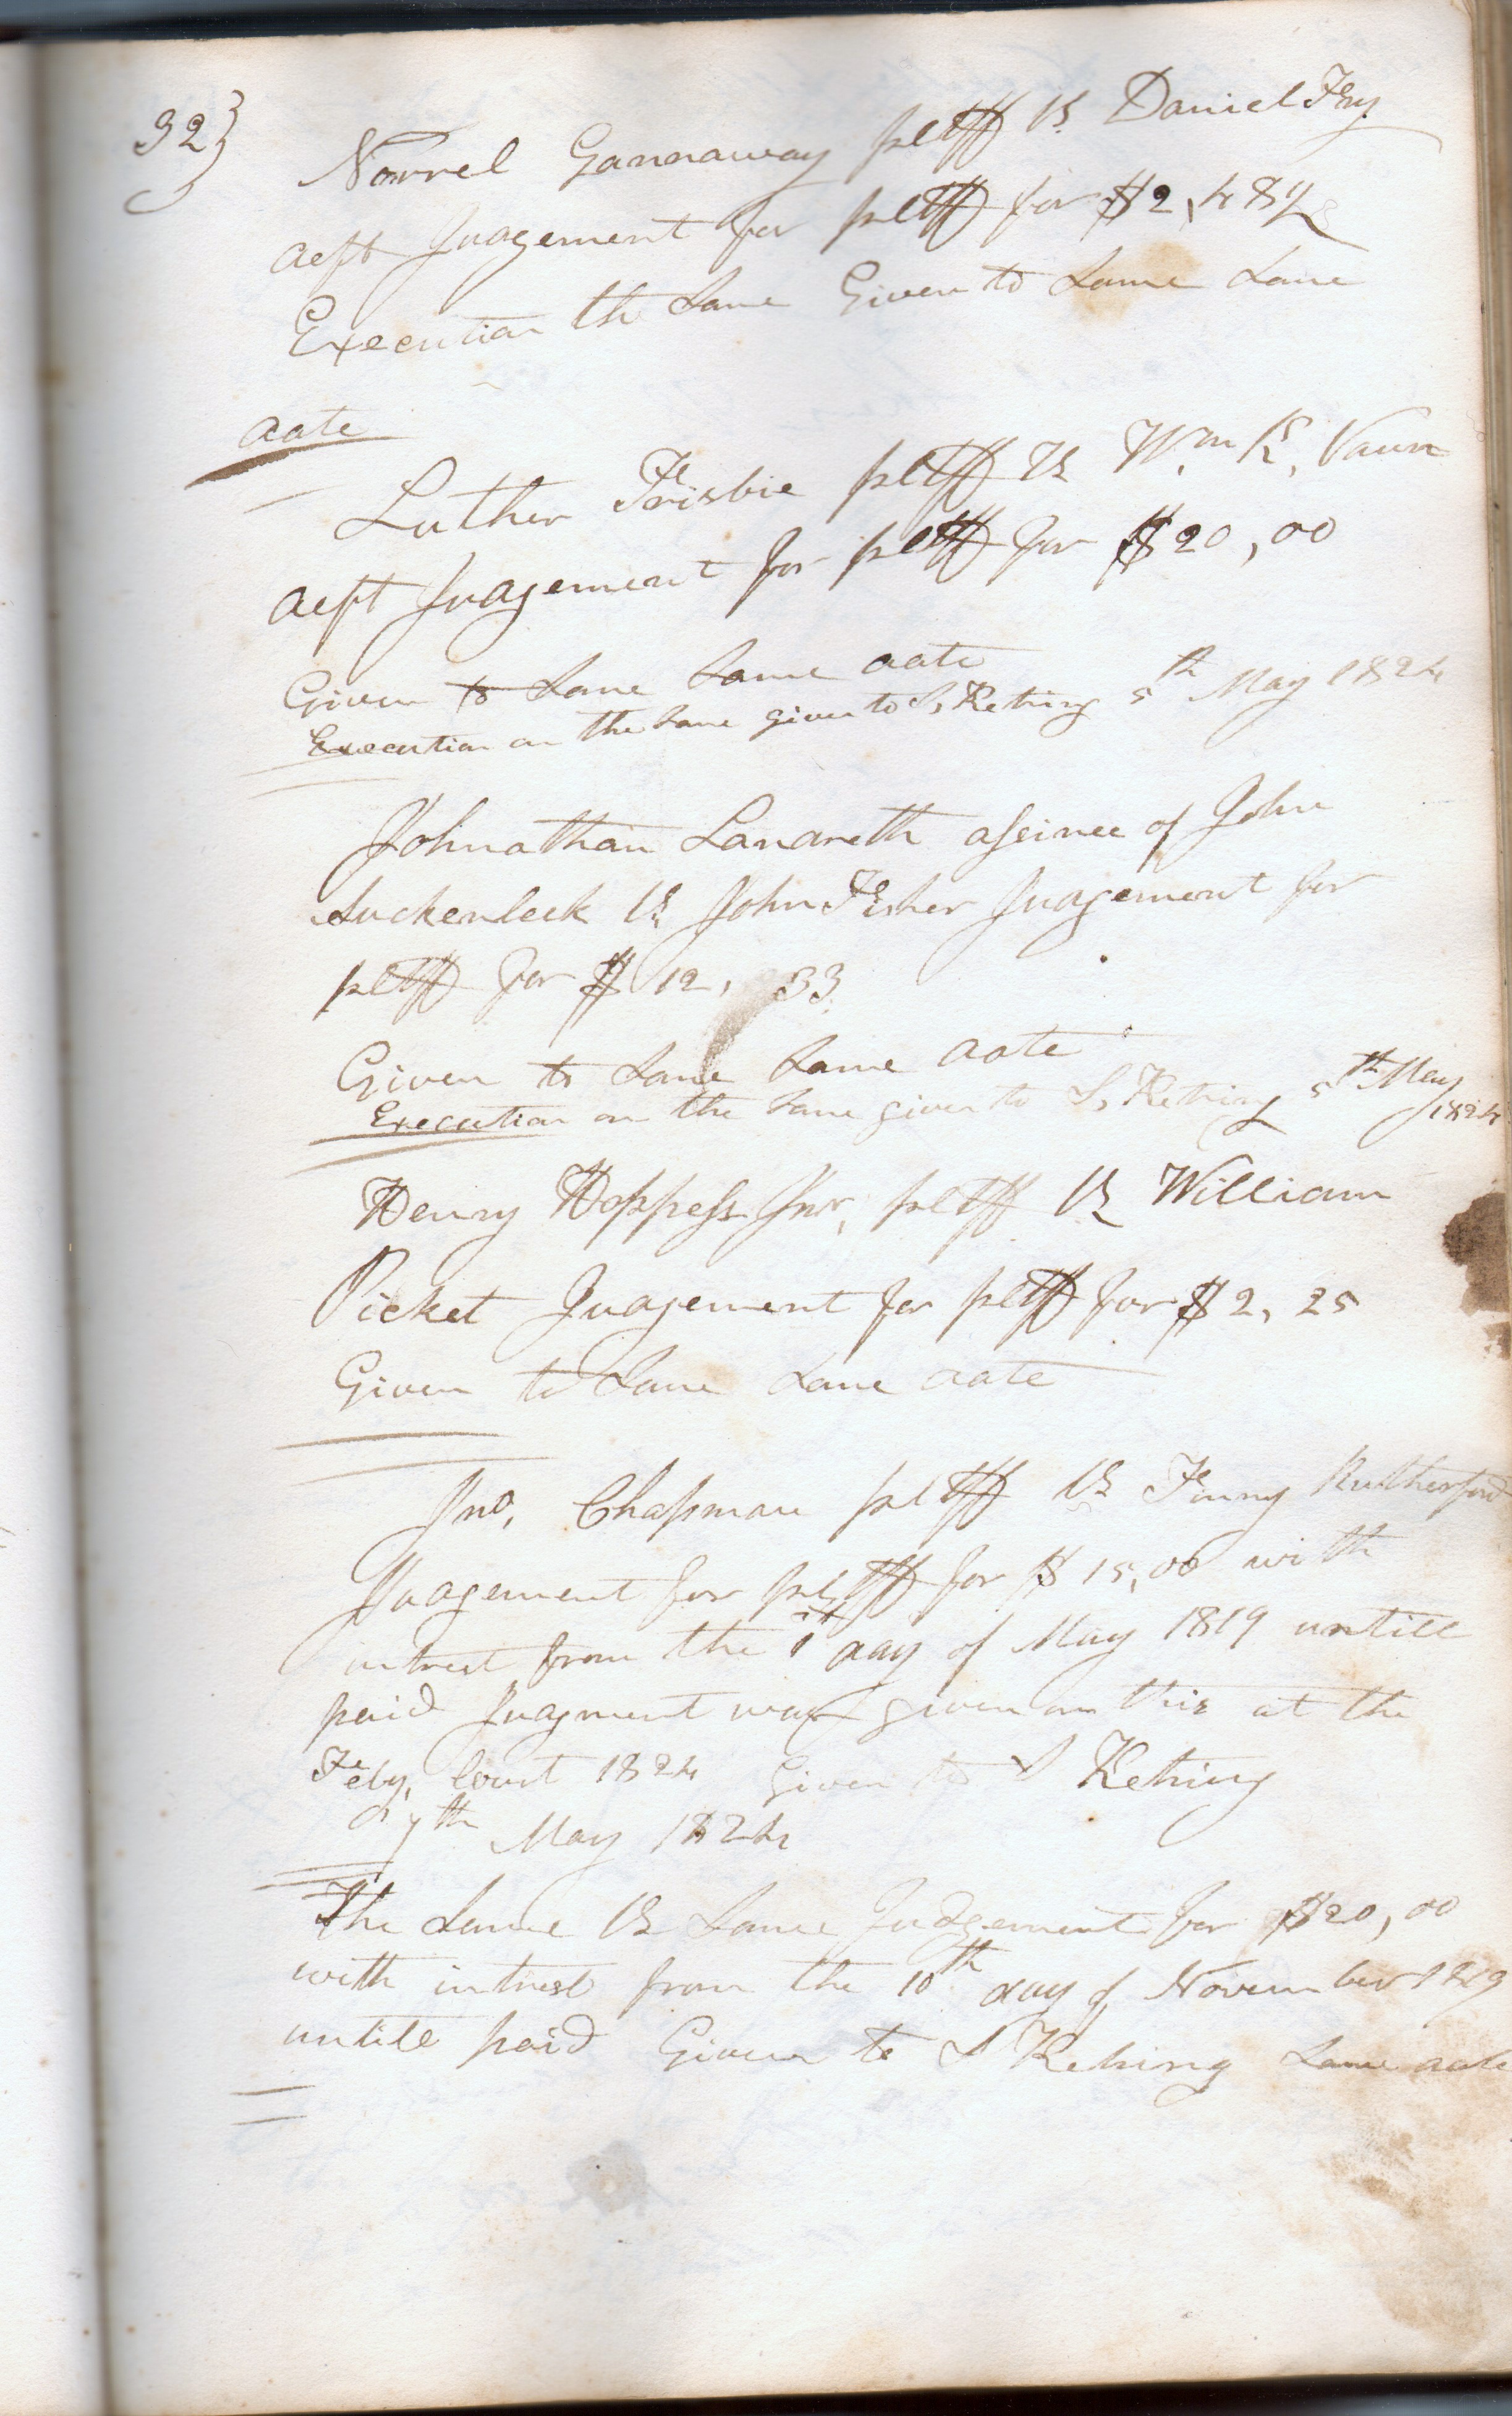 32}
Norrel Gannaway pltff vs Daniel Fry
deft Judgement for pltff for $2,48½
Execution the Same Given to Same Same
date
Luther Frisbie pltff vs Wm R. Vaun
deft Judgement for pltff for $20,00
Given to Same Same date
Execution on the Same given to S, Kething 5th May 1824
Johnathan Lanareth assinee of John
Suckenleck vs John Fisher Judgement for
pltff for $12, 33
Given to Same Same date
Execution on the Same given to S, Kething 5th May
1824
Henry Hoppess Jnr, pltff vs William
Picket Judgement for pltff for $2, 25
Given to Same Same date
Jno, Chapman pltff vs Finny Rutherford
Judgement for pltff for $15,00 with
intrest from the 1st day of May 1819 untill
paid Judgment was given on this at the
Feby, Court 1824 Given to S Kething
7th May 1824
The Same vs Same Judgement for $20,00
with intrest from the 10th day of November
untill paid Given to S Kething Same date